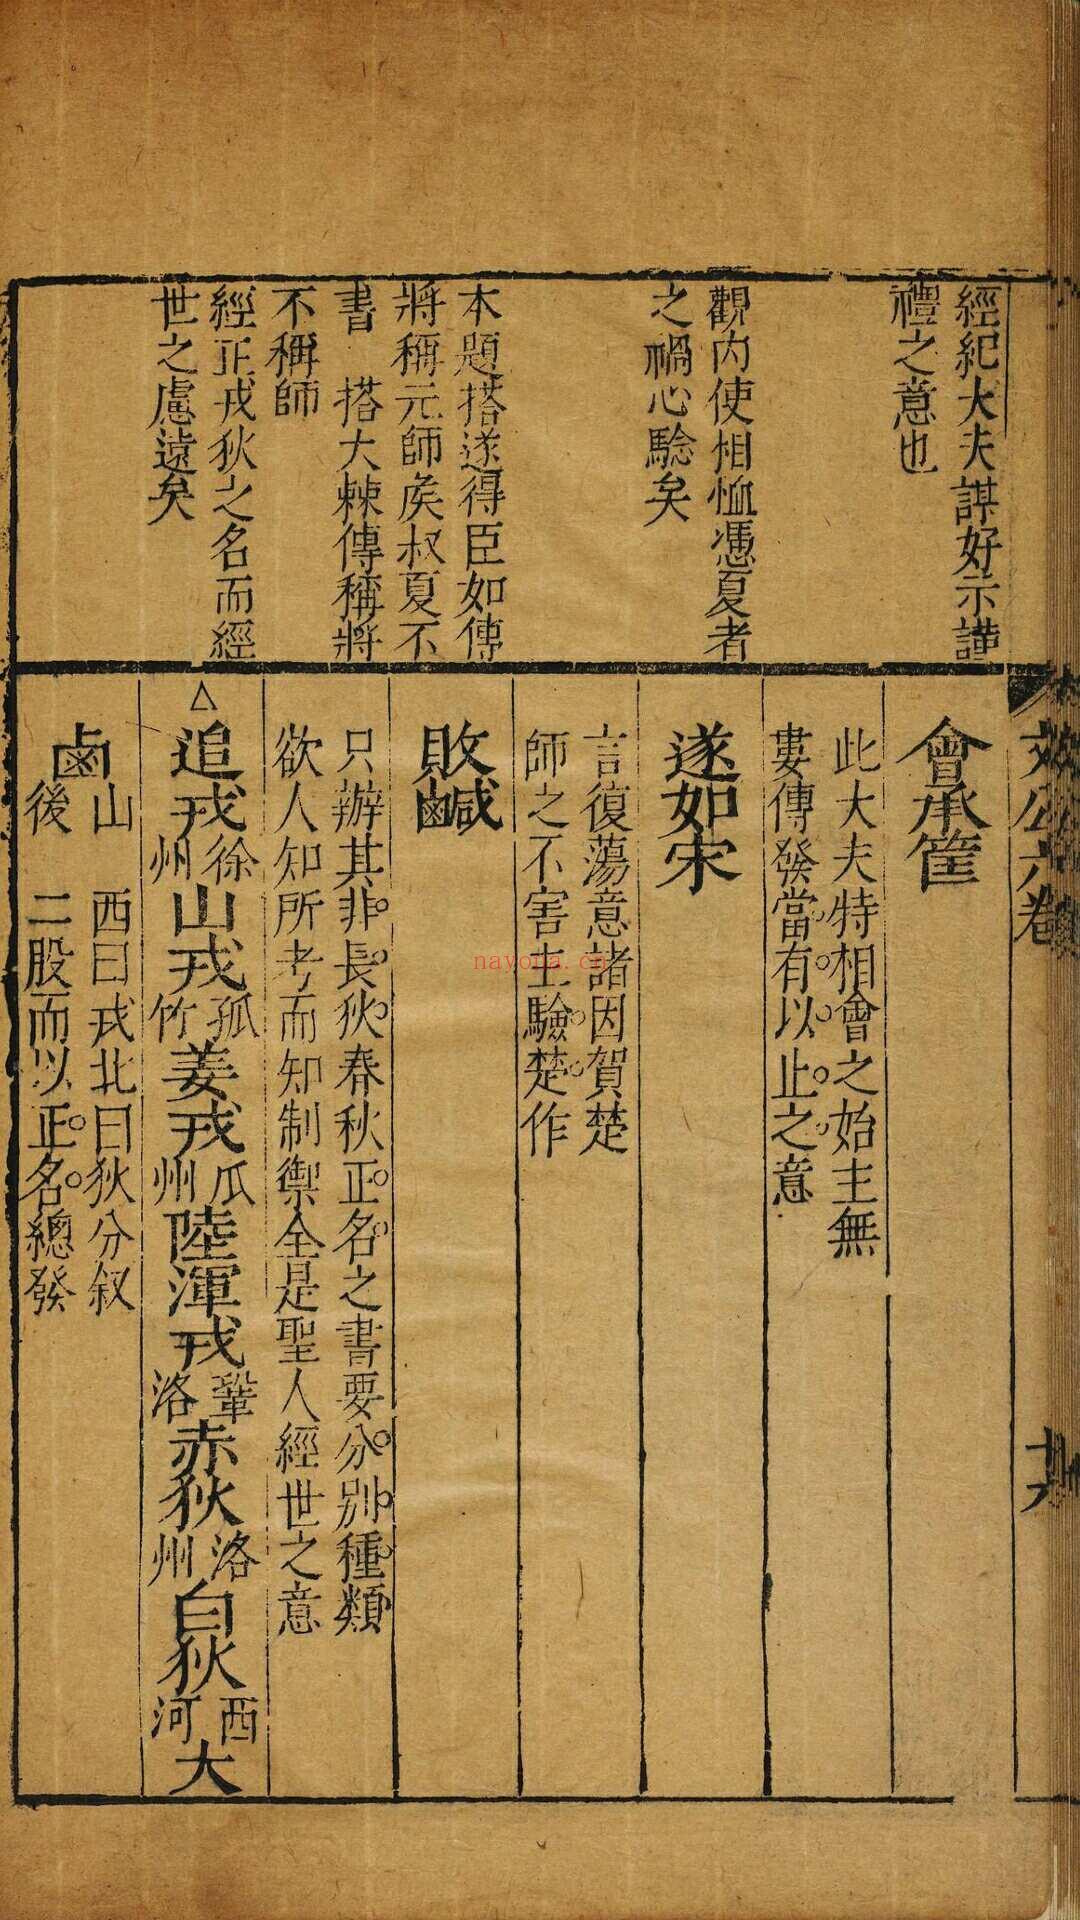 經紀大夫謀好示謹
禮之意也
觀內使相恤憑夏者
之禍心驗矣
本題搭遂得臣如傳
將稱元師矦叔夏不
書　搭大棘傳稱將
不稱師
經正戎狄之名而經
世之慮遠矣
文公六卷
會承筐
此大夫特相會之始主無
婁傳發當有以止之意
遂如宋
言復蕩意諸因賀楚
師之不害主驗楚作
敗鹹
只辦其非長狄春秋正名之書要分別種類
欲人知所考而知制禦全是聖人經世之意
△追戎徐州山戎孤竹姜戎瓜州陸渾戎鞏洛赤狄洛州白狄西河大
鹵山後　西曰戎北曰狄分叙
二股而以正名總發
nayona.cn